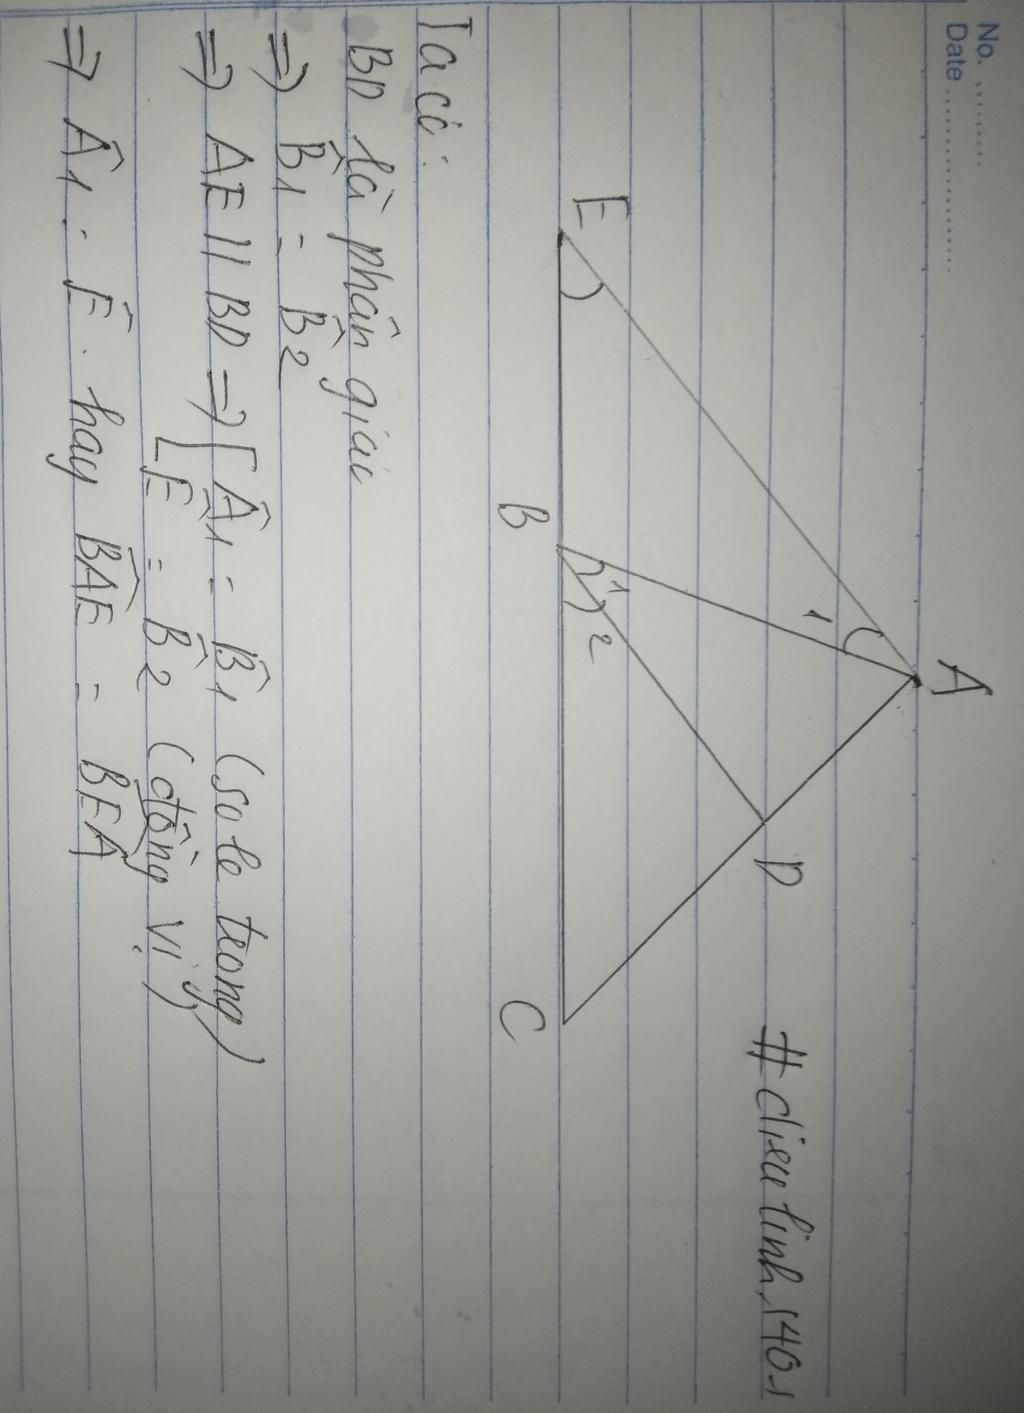 No. ..........
Date ........................
A
1
E
B
1
2
D
C
#dieulinh.1401
Ta có:
BD là phân giác
⇒ B̂1 = B̂2
⇒ AE // BD ⇒ [ Â1 = B̂1 (so le trong)
Ê = B̂2 (đồng vị)
⇒ Â1 = Ê. hay BAE = BEA